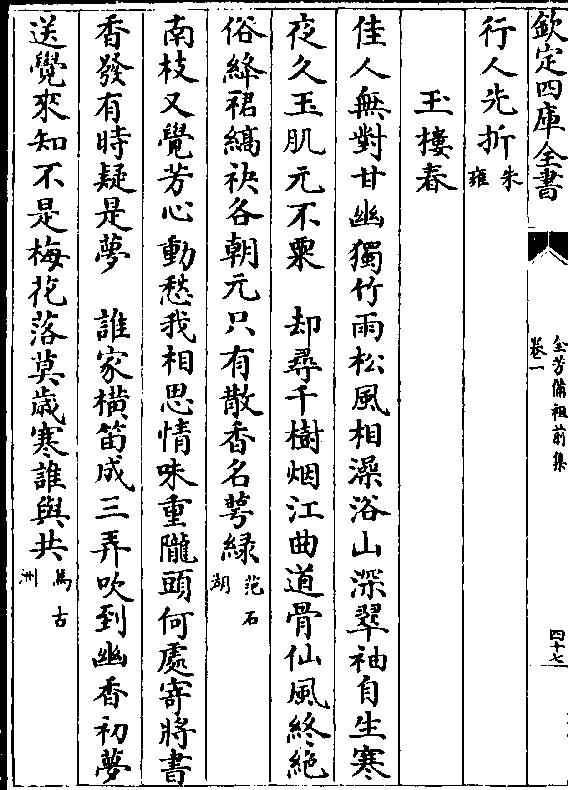 欽定四庫全書
全芳備祖前集
卷一
四十七
行人先折朱雍
玉樓春
佳人無對甘幽獨竹雨松風相澡浴山深翠袖自生寒
夜久玉肌元不粟 却尋千樹烟江曲道骨仙風終絶
俗絳裙縞袂各朝元只有散香名萼緑范石湖
南枝又覺芳心動愁我相思情味重隴頭何處寄將書
香發有時疑是夢 誰家横笛成三弄吹到幽香初夢
送覺來知不是梅花落莫歳寒誰與共馬古洲